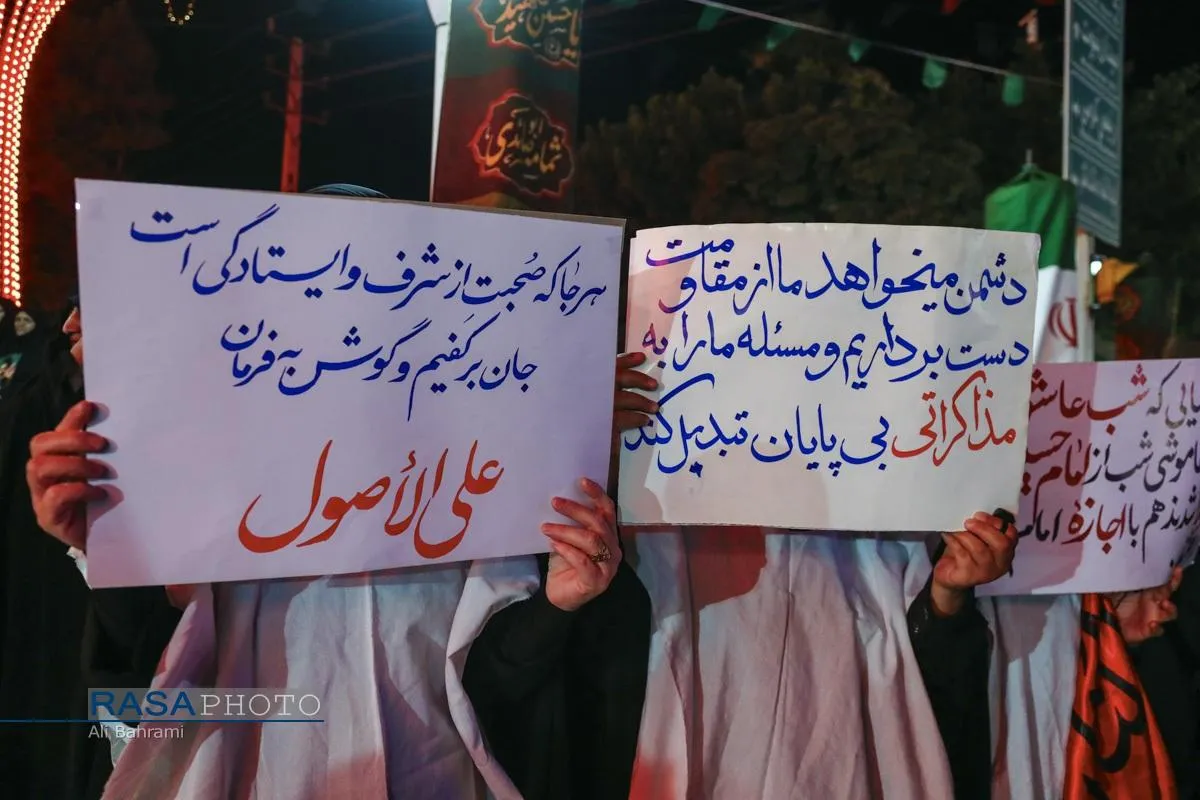 یا حسین شهید
یا ابو ثمامه صائدی
هرجا که صُحبت از شرف و ایستادگی است
جان بر کَفیم و گوش به فرمان
علی الأصول
دشمن میخواهد ما از مقاومت
دست برداریم و مسئله ما را به
مذاکراتی بی پایان تبدیل کند
که شب عاشو
شب از امام حسی
هم با اجازهٔ امام
RASAPHOTO
Ali Bahrami